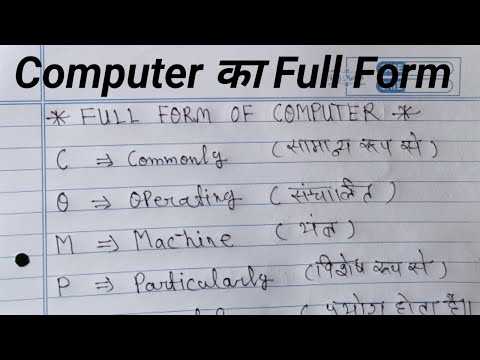 Computer का Full Form
* FULL FORM OF COMPUTER *
C ⇒ Commonly (सामान्य रूप से)
O ⇒ Operating (संचालित)
M ⇒ Machine (यंत्र)
P ⇒ Particularly (विशेष रूप से)
प्रयोग होता है॥